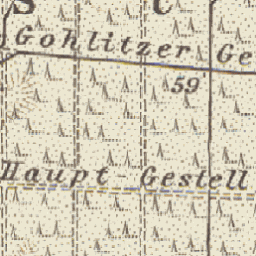 Gohlitzer Ge
59
Haupt-Gestell